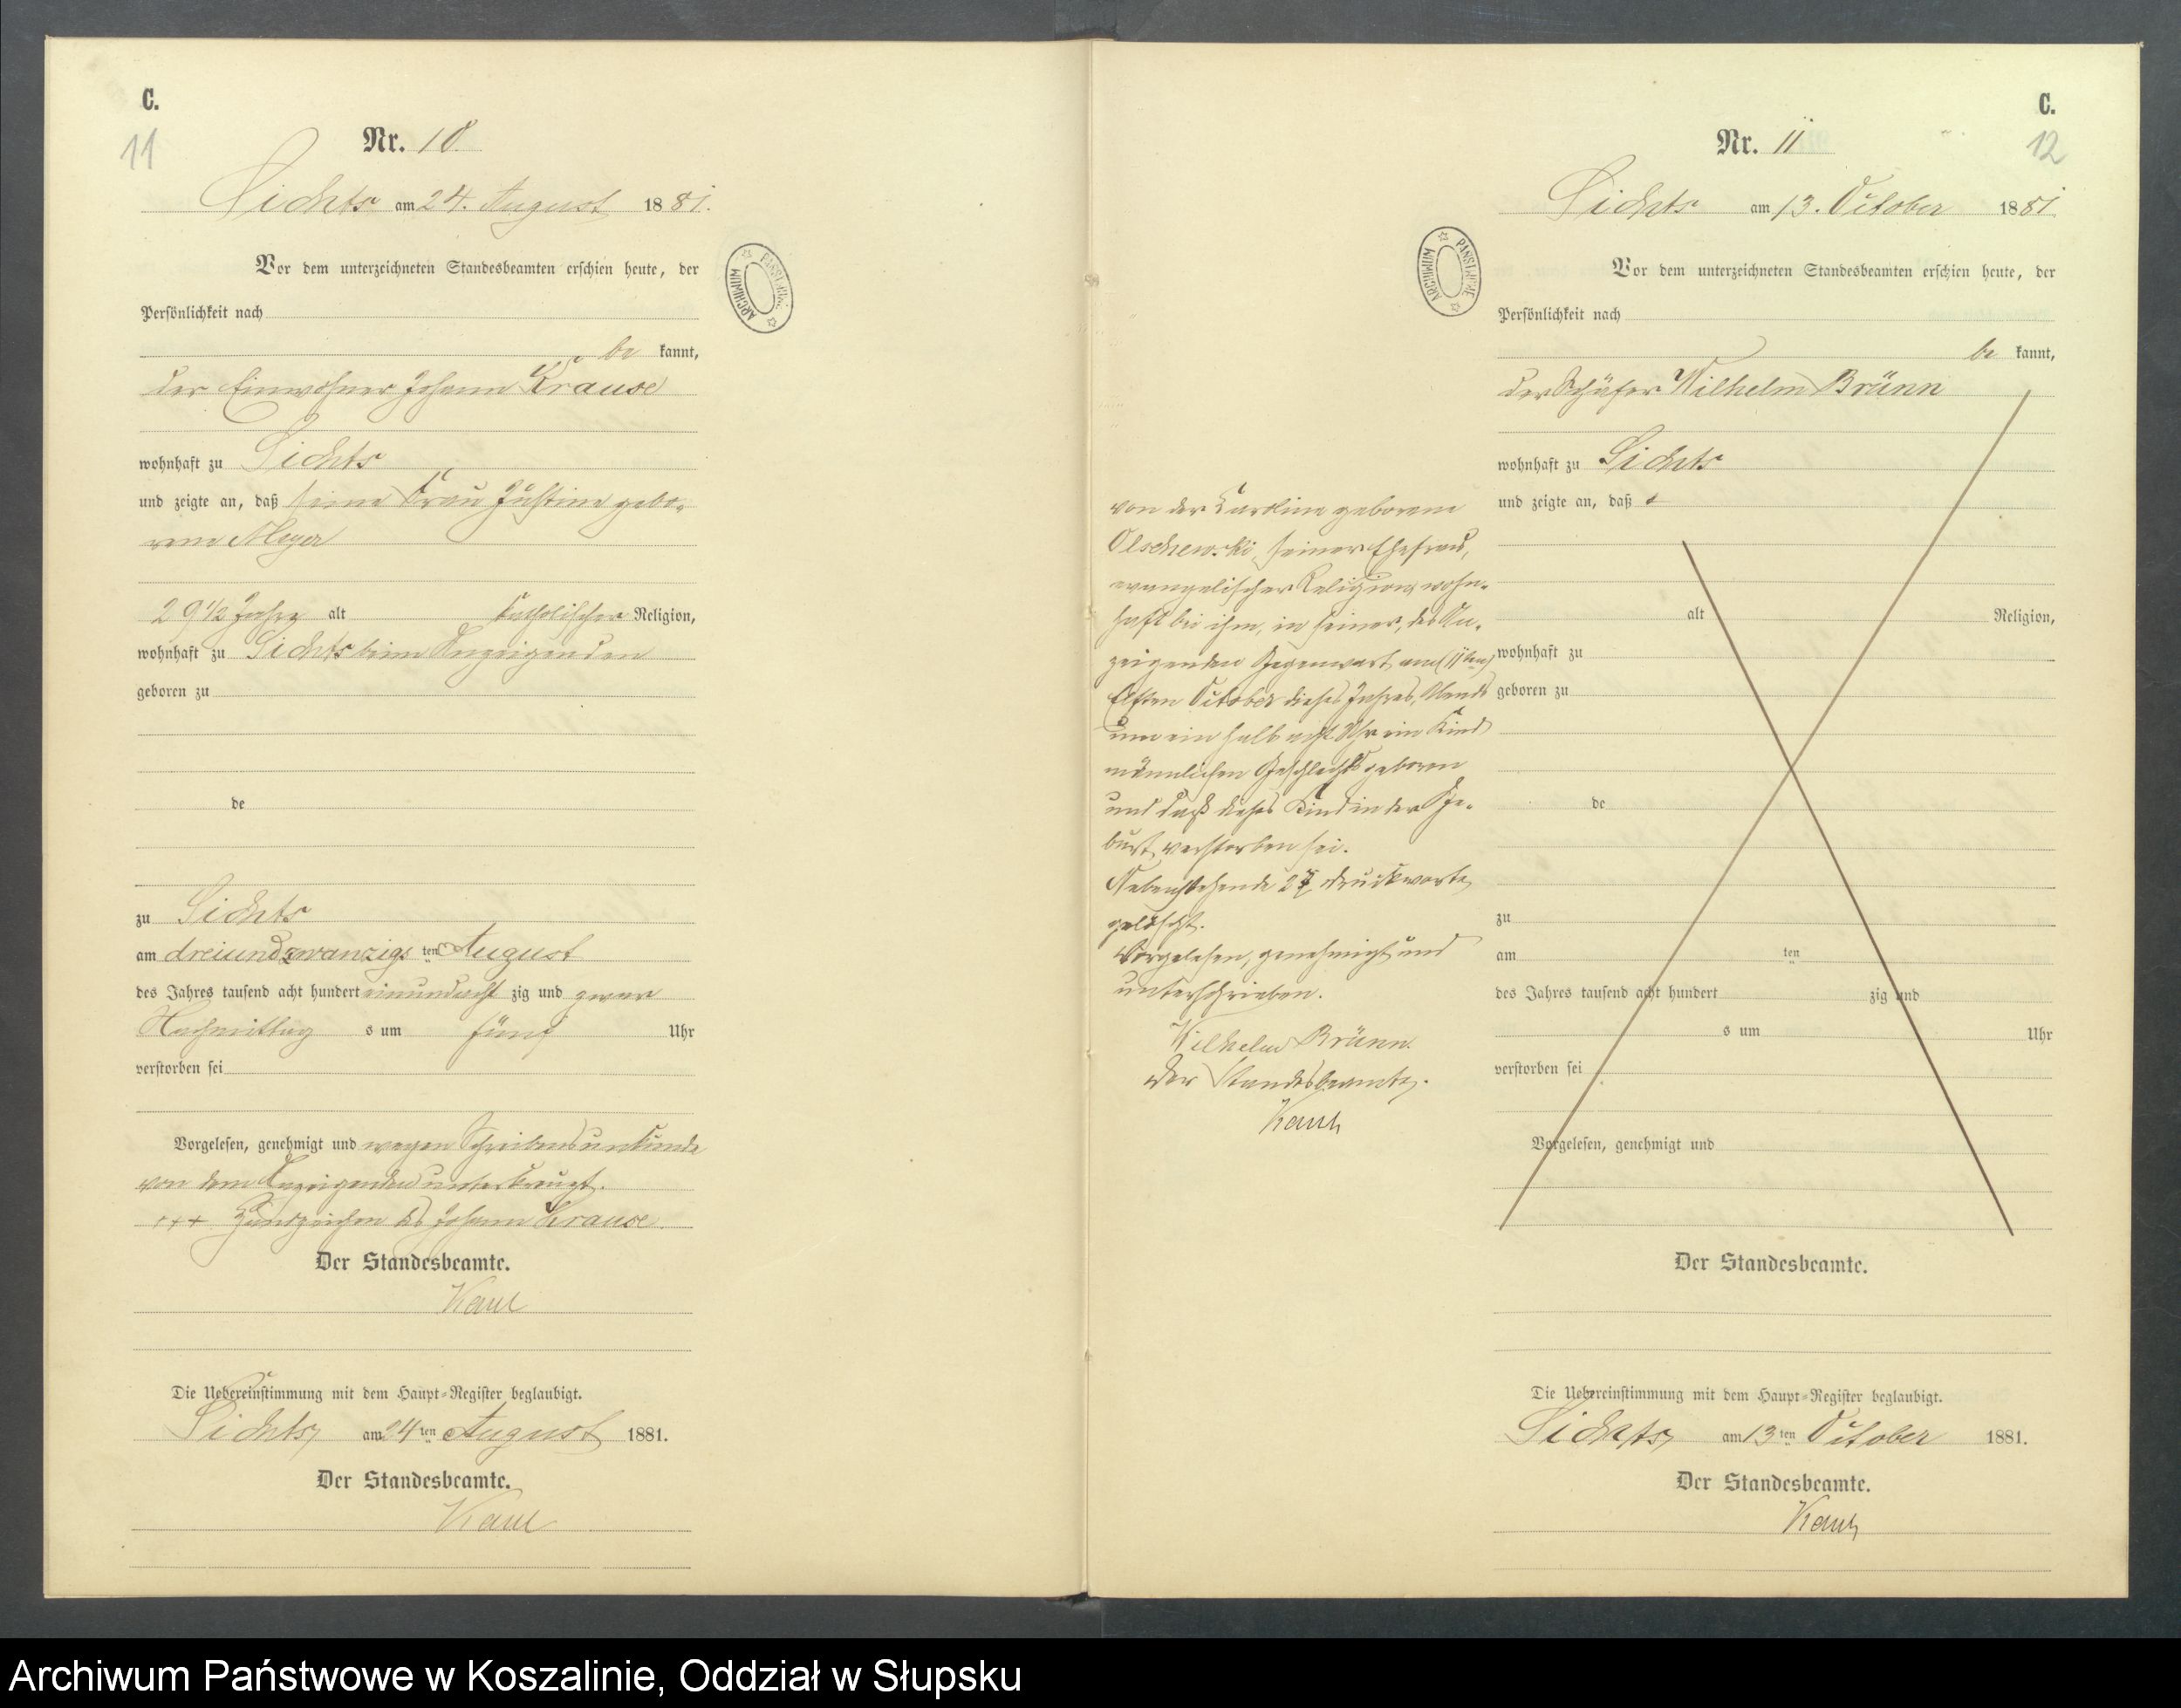 C.
11
Nr. 10
Sichts am 24. August 1881.
Vor dem unterzeichneten Standesbeamten erschien heute, der
Persönlichkeit nach
be kannt,
der Einwohner Johann Krause
wohnhaft zu Sichts
und zeigte an, daß seine Frau Justine gebo-
rene Meyer
29 1/2 Jahre alt katholischer Religion,
wohnhaft zu Sichts beim Anzeigenden
geboren zu
de
zu Sichts
am dreiundzwanzigsten August
des Jahres tausend acht hundert einundacht zig und zwar
Nachmittag s um fünf Uhr
verstorben sei
Vorgelesen, genehmigt und wegen Schreibensunkunde
von dem Anzeigenden unterkreuzt.
+++ Handzeichen des Johann Krause
Der Standesbeamte.
Die Uebereinstimmung mit dem Haupt-Register beglaubigt.
Sichts, am 24ten August 1881.
Der Standesbeamte.
ARCHIWUM PAŃSTWOWE
C.
12
Nr. 11
Sichts am 13. October 1881
ARCHIWUM PAŃSTWOWE
Vor dem unterzeichneten Standesbeamten erschien heute, der
Persönlichkeit nach
be kannt,
der Schäfer Wilhelm Brünn
wohnhaft zu Sichts
und zeigte an, daß
alt Religion,
wohnhaft zu
geboren zu
de
zu
am ten
des Jahres tausend acht hundert zig und
s um Uhr
verstorben sei
Vorgelesen, genehmigt und
von der Caroline geborene
Olschewski, seiner Ehefrau,
evangelischer Religion, wohn-
haft bei ihm, in seiner, des An-
zeigenden Gegenwart am (11ten)
Elften October dieses Jahres, Abends
um ein halb acht Uhr ein Kind
männlichen Geschlechts geboren
und daß dieses Kind in der Ge-
burt verstorben sei.
Nebenstehende 27 Druckworte
gelöscht.
Vorgelesen, genehmigt und
unterschrieben.
Wilhelm Brünn.
Der Standesbeamte.
Der Standesbeamte.
Die Uebereinstimmung mit dem Haupt-Register beglaubigt.
Sichts, am 13ten October 1881.
Der Standesbeamte.
Archiwum Państwowe w Koszalinie, Oddział w Słupsku